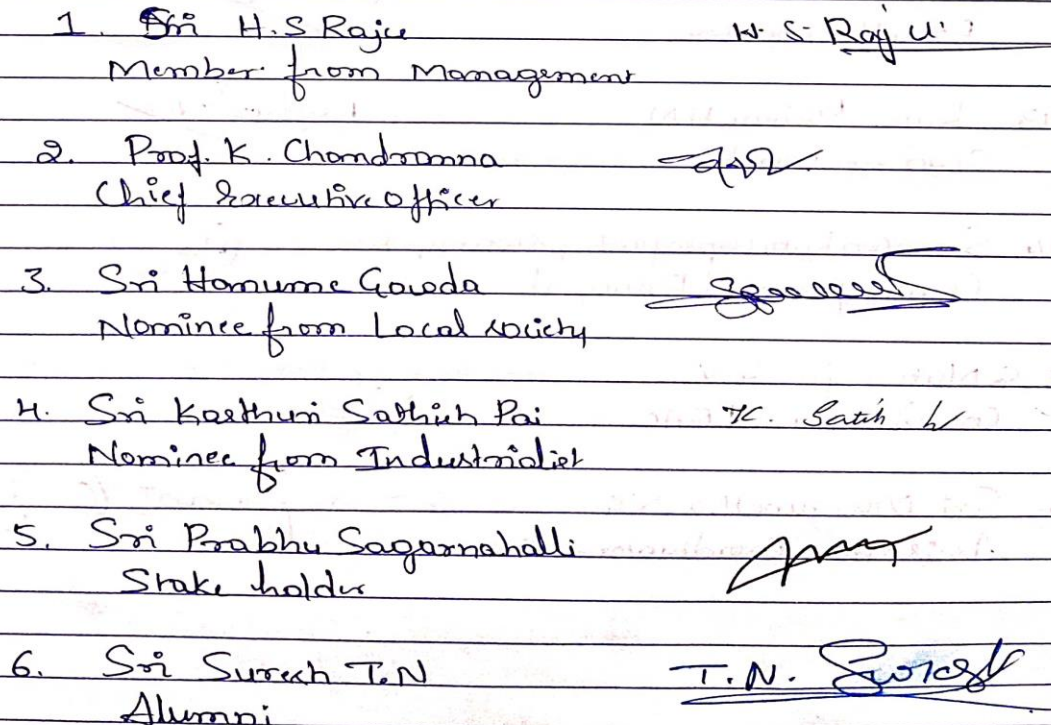 1. Sri H.S Raju H. S. Raju
Member from Management
2. Prof. K. Chandranna
Chief Executive Officer
3. Sri Hanume Gowda
Nominee from Local society
4. Sri Kasthuri Sathish Pai K. Satish
Nominee from Industrialist
5. Sri Prabhu Sagarnahalli
Stake holder
6. Sri Suresh T.N T.N. Suresh
Alumni